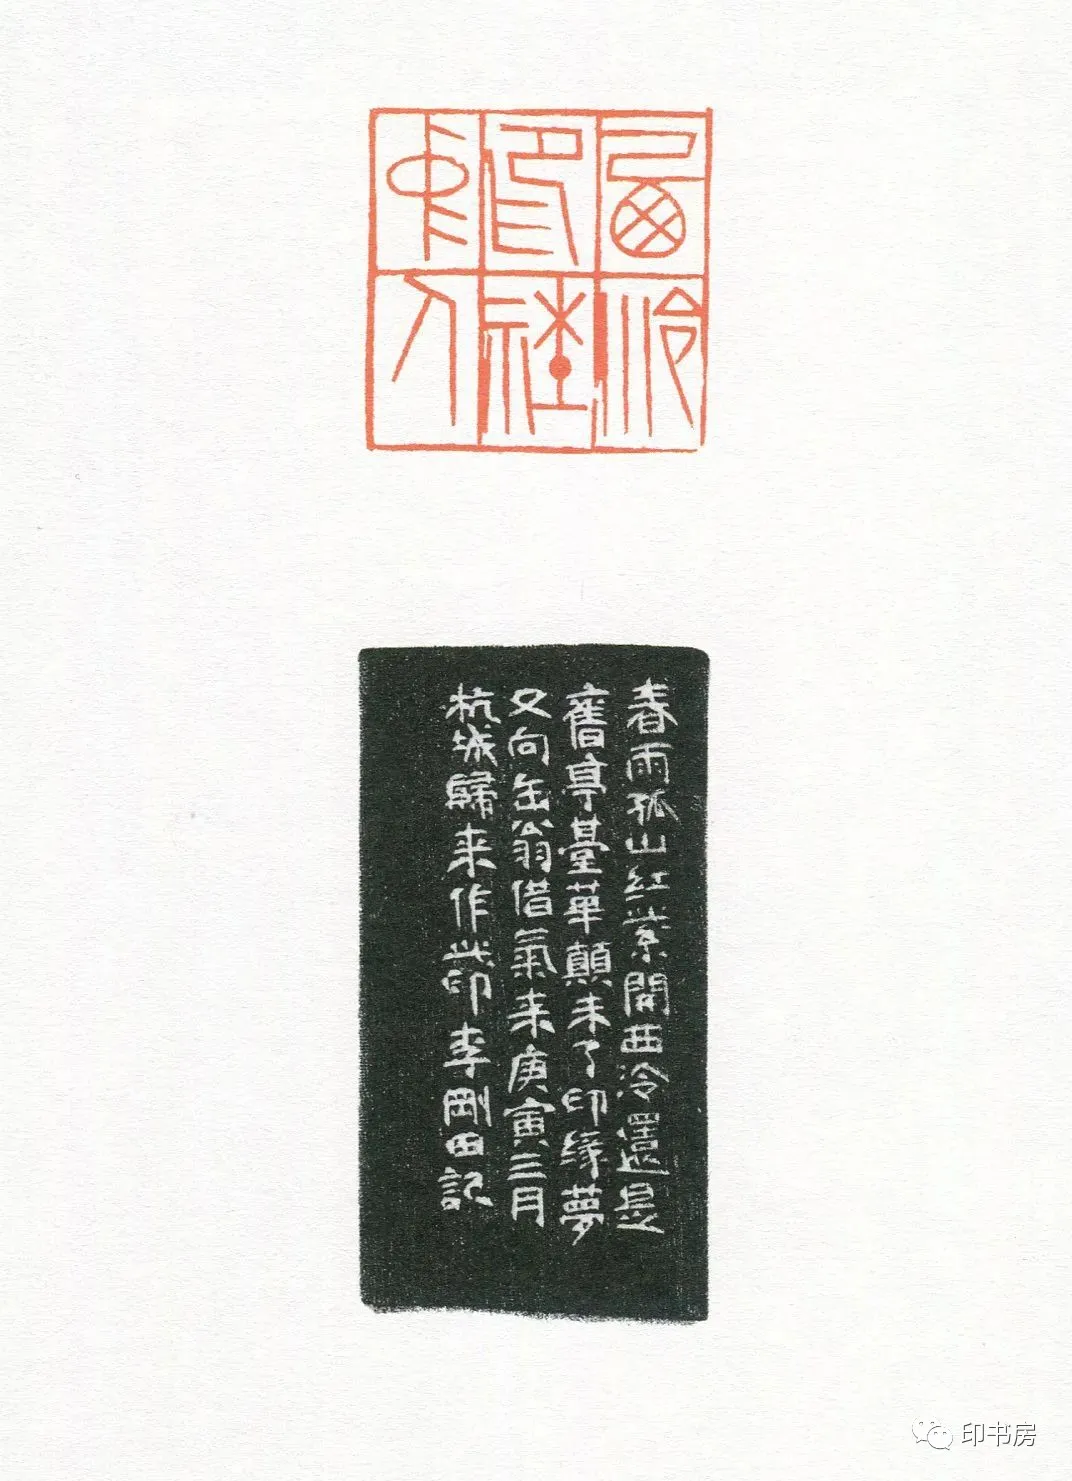 西泠
印社
中人
春雨孤山紅紫開西泠還是
舊亭臺華顛未了印緣夢
又向缶翁借氣来庚寅三月
杭城歸来作此印李剛田記
印书房